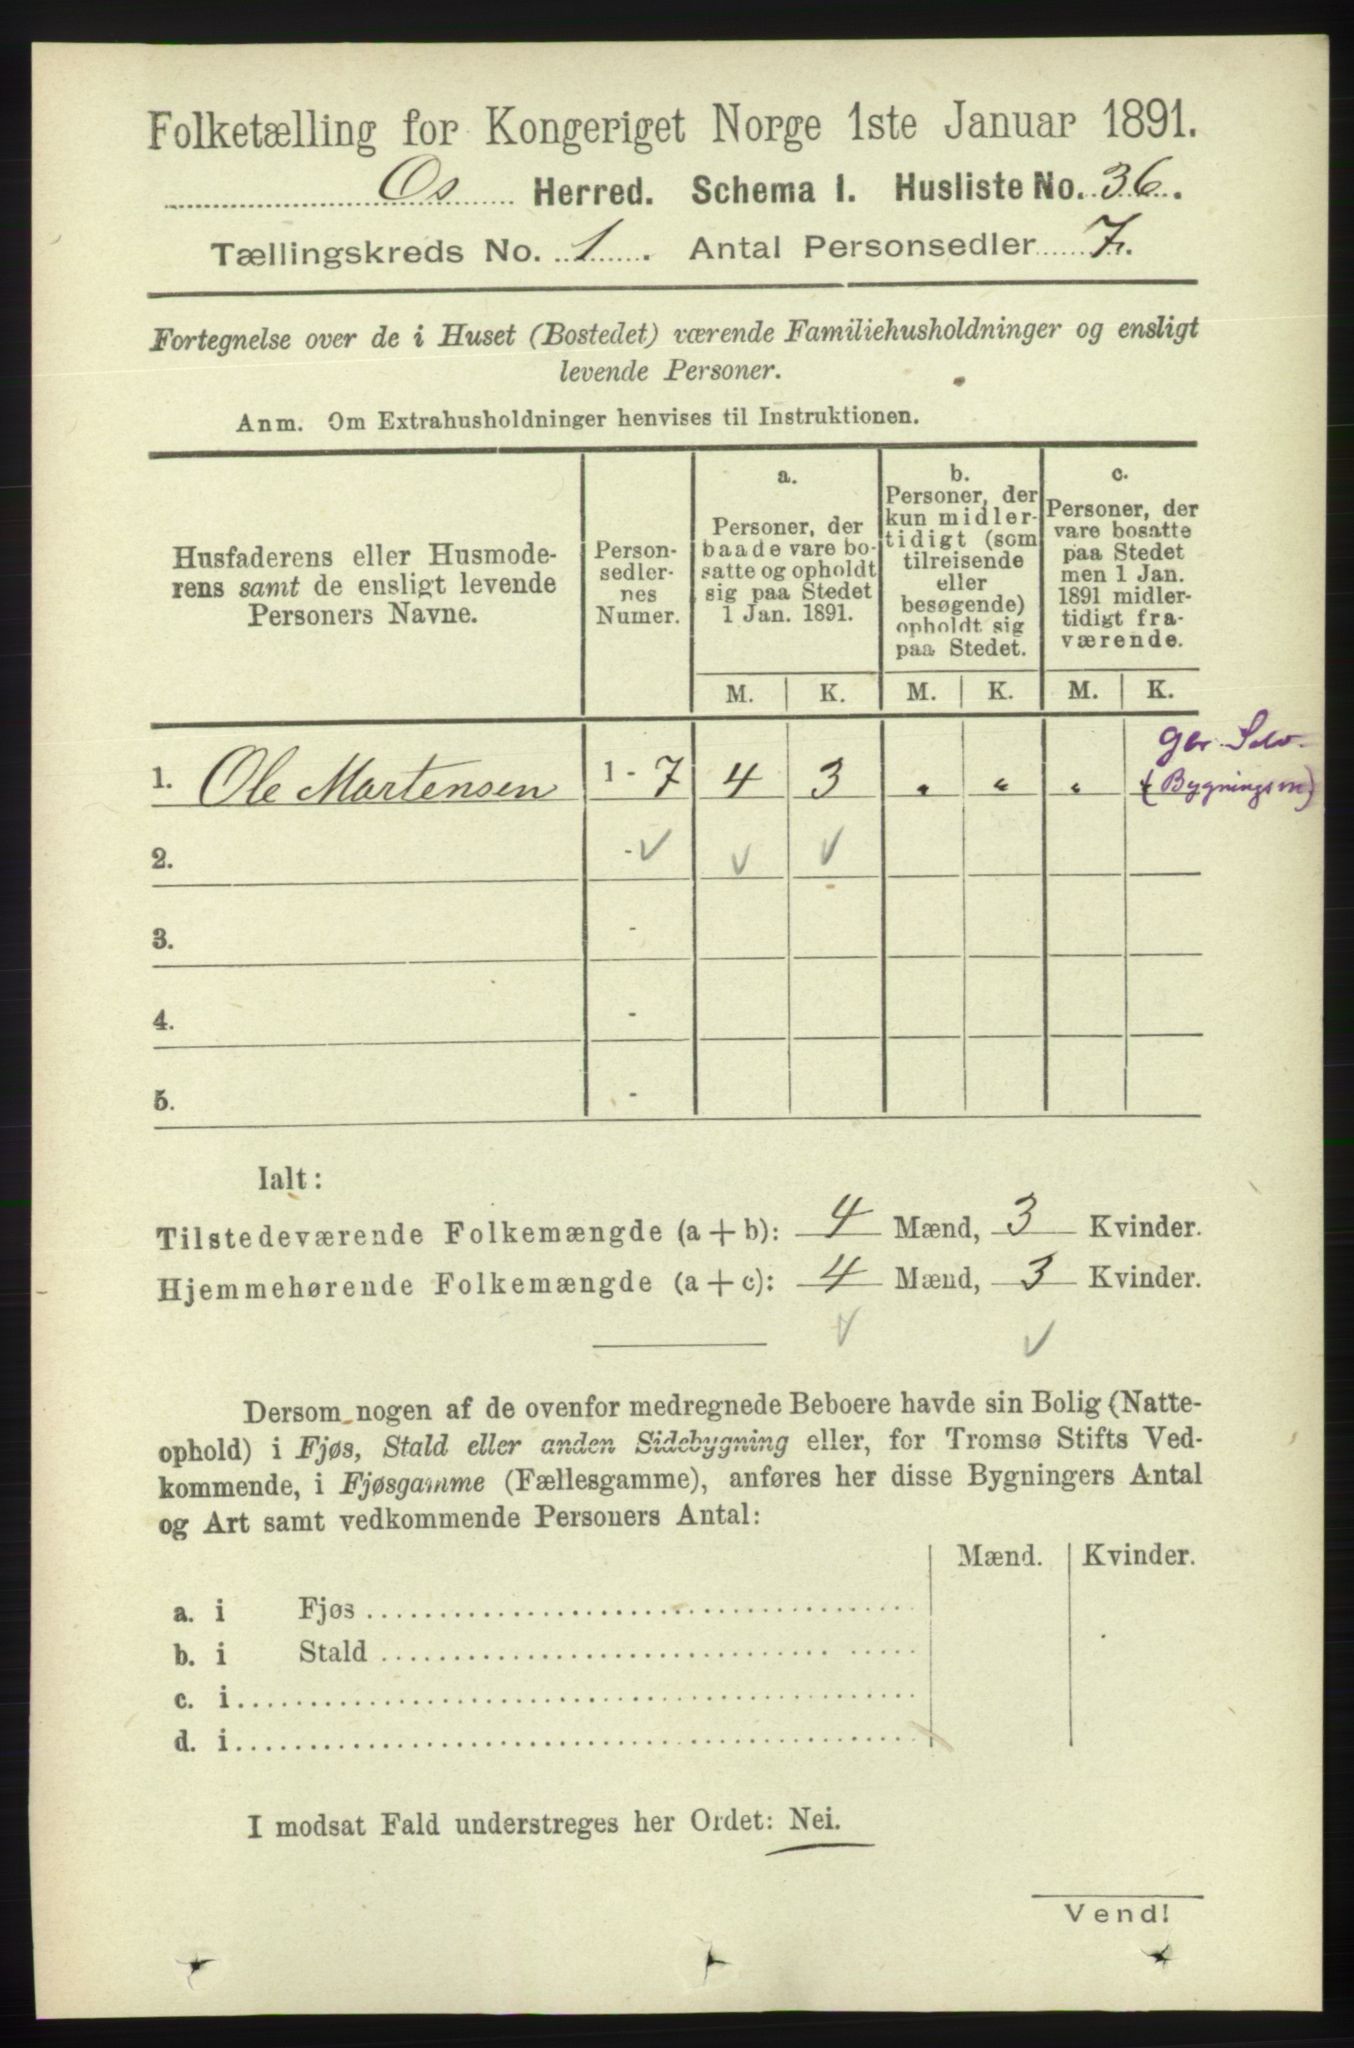 Folketælling for Kongeriget Norge 1ste Januar 1891.
Os Herred. Schema I. Husliste No. 36.
Tællingskreds No. 1. Antal Personsedler 7.
Fortegnelse over de i Huset (Bostedet) værende Familiehusholdninger og ensligt
levende Personer.
Anm. Om Extrahusholdninger henvises til Instruktionen.
Husfaderens eller Husmode-
rens samt de ensligt levende
Personers Navne.
Person-
sedler-
nes
Numer.
a.
Personer, der
baade vare bo-
satte og opholdt
sig paa Stedet
1 Jan. 1891.
b.
Personer, der
kun midler-
tidigt (som
tilreisende
eller
besøgende)
opholdt sig
paa Stedet.
c.
Personer, der
vare bosatte
paa Stedet
men 1 Jan.
1891 midler-
tidigt fra-
værende.
M. K. M. K. M. K.
1. Ole Martensen 1 - 7 4 3 " " " "
gbr. Selv-
(Bygningsm)
2. - ✓ ✓ ✓
3. -
4. -
5. -
Ialt:
Tilstedeværende Folkemængde (a + b): 4 Mænd, 3 Kvinder.
Hjemmehørende Folkemængde (a + c): 4 Mænd, 3 Kvinder.
✓ ✓
Dersom nogen af de ovenfor medregnede Beboere havde sin Bolig (Natte-
ophold) i Fjøs, Stald eller anden Sidebygning eller, for Tromsø Stifts Ved-
kommende, i Fjøsgamme (Fællesgamme), anføres her disse Bygningers Antal
og Art samt vedkommende Personers Antal:
Mænd. Kvinder.
a. i Fjøs
b. i Stald
c. i
d. i
I modsat Fald understreges her Ordet: Nei.
Vend!